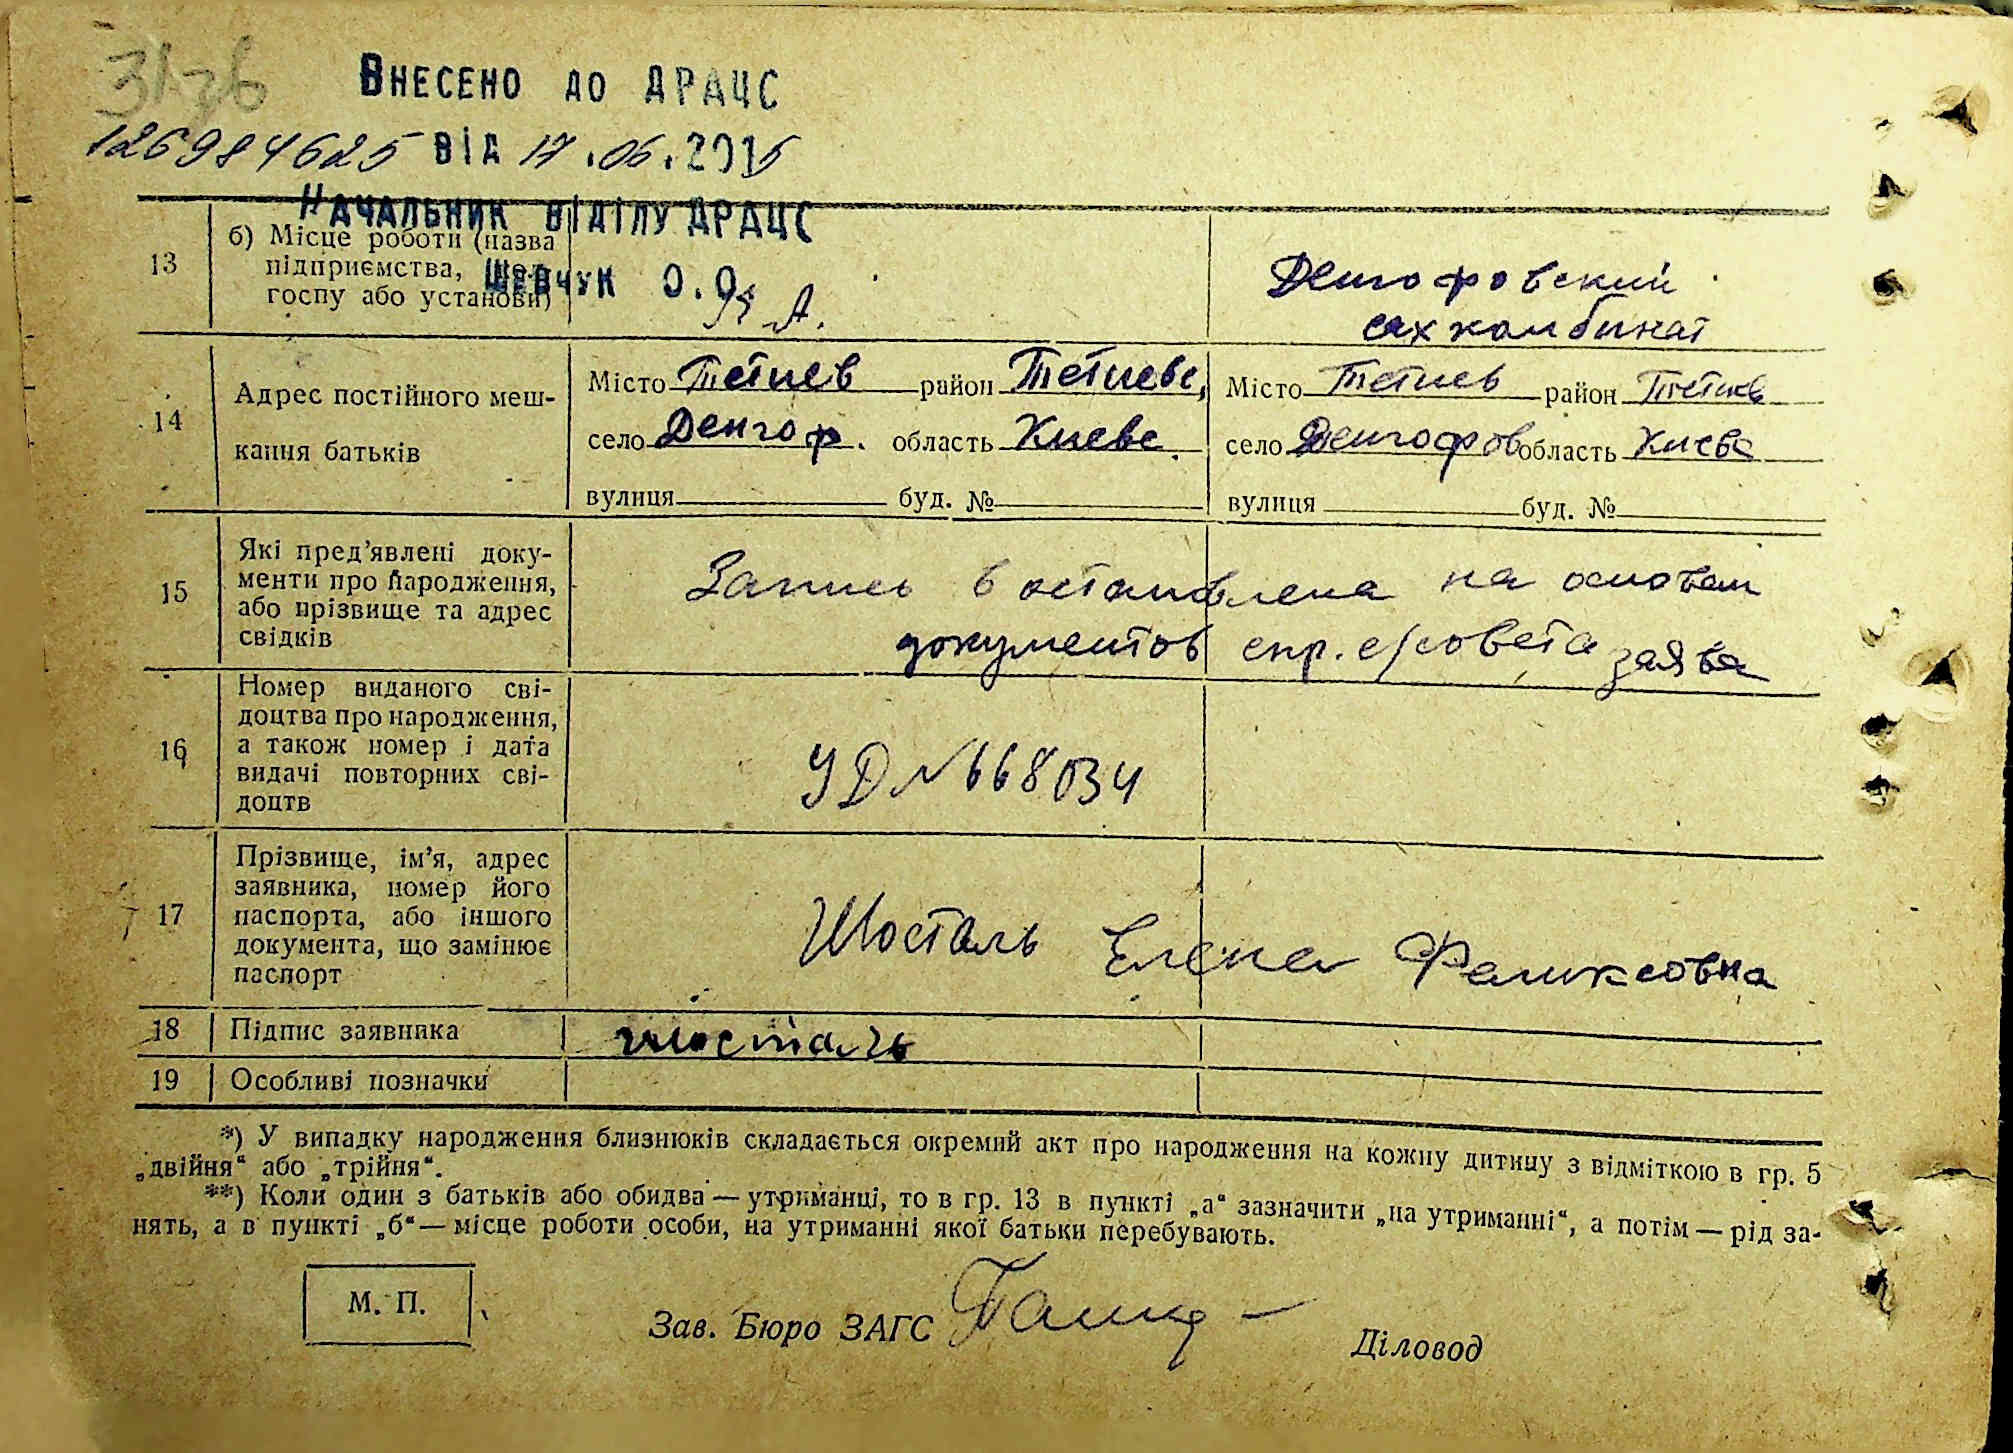 Внесено до ДРАЦС
126984625 від 17.06.2015
Начальник відділу ДРАЦС
Шевчук О.О.
13
б) Місце роботи (назва
підприємства,
госпу або установи)
Денгофовский
сахкомбинат
14
Адрес постійного меш-
кання батьків
Місто Тетиев район Тетиевс,
село Денгоф. область Киевс.
вулиця буд. №
Місто Тетиев район Тетиев
село Денгофов область Киевс
вулиця буд. №
15
Які пред'явлені доку-
менти про народження,
або прізвище та адрес
свідків
Запись востановлена на основан
документов спр. с/совета заява
16
Номер виданого сві-
доцтва про народження,
а також номер і дата
видачі повторних сві-
доцтв
УД № 668034
17
Прізвище, ім'я, адрес
заявника, номер його
паспорта, або іншого
документа, що замінює
паспорт
Шосталь Елена Феликсовна
18
Підпис заявника
шосталь
19
Особливі позначки
*) У випадку народження близнюків складається окремий акт про народження на кожну дитину з відміткою в гр. 5
„двійня“ або „трійня“.
**) Коли один з батьків або обидва — утриманці, то в гр. 13 в пункті „а“ зазначити „на утриманні“, а потім — рід за-
нять, а в пункті „б“ — місце роботи особи, на утриманні якої батьки перебувають.
М. П.
Зав. Бюро ЗАГС
Діловод